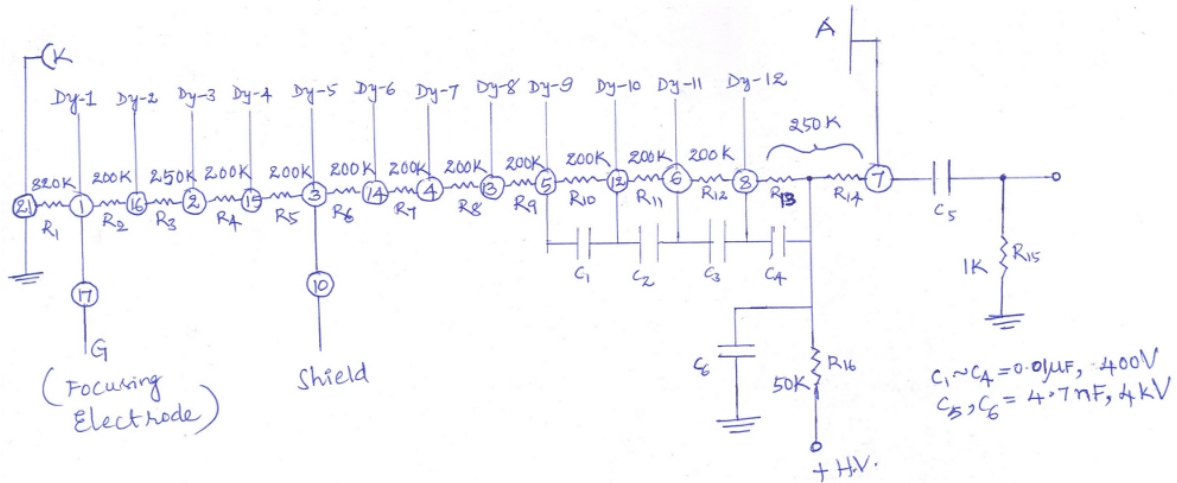 K
A
Dy-1 Dy-2 Dy-3 Dy-4 Dy-5 Dy-6 Dy-7 Dy-8 Dy-9 Dy-10 Dy-11 Dy-12
250K
820K 200K 250K 200K 200K 200K 200K 200K 200K 200K 200K 200K
21 1 16 2 15 3 14 4 13 5 12 6 8 7
R1 R2 R3 R4 R5 R6 R7 R8 R9 R10 R11 R12 R13 R14
C5
C1 C2 C3 C4
1K R15
17 10
G
(Focusing
Electrode)
Shield
C6
R16
50K
+ H.V.
C1~C4 = 0.01μF, 400V
C5, C6 = 4.7nF, 4kV